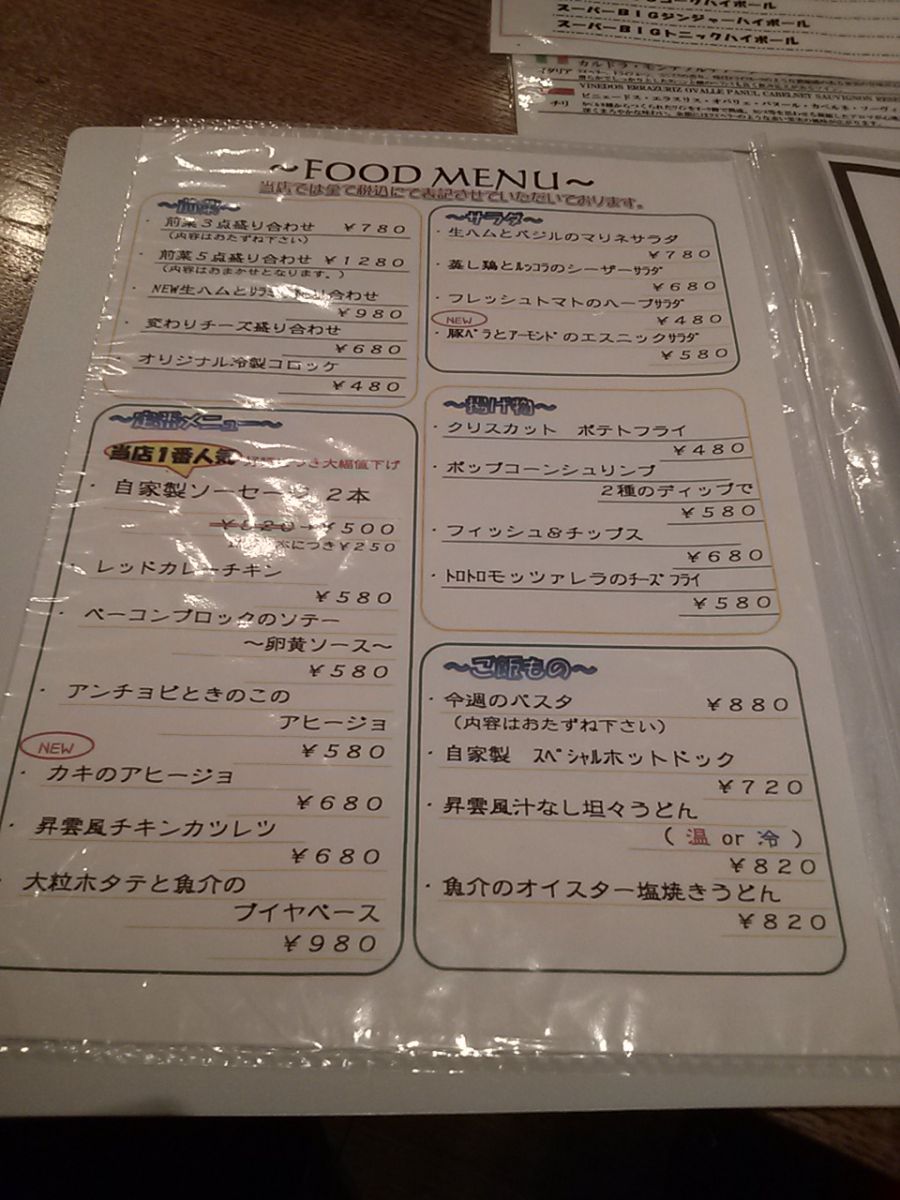 スーパーBIGジンジャーハイボール
スーパーBIGトニックハイボール
VINEDOS ERRAZURIZ OVALLE PANUL CABELNEY SAUVIGNOS
チリ
～FOOD MENU～
当店では全て税込にて表記させていただいております。
～前菜～
・前菜3点盛り合わせ ￥780
(内容はおたずね下さい)
・前菜5点盛り合わせ ￥1280
(内容はおまかせとなります。)
・NEW生ハムとサラミ 盛り合わせ
￥980
・変わりチーズ盛り合わせ
￥680
・オリジナル冷製コロッケ
￥480
～定番メニュー～
当店1番人気 好評につき大幅値下げ
・自家製ソーセージ 2本
￥500
￥250
・レッドカレーチキン
￥580
・ベーコンブロックのソテー
～卵黄ソース～
￥580
・アンチョビときのこの
アヒージョ
￥580
NEW
・カキのアヒージョ
￥680
・昇雲風チキンカツレツ
￥680
・大粒ホタテと魚介の
ブイヤベース
￥980
～サラダ～
・生ハムとバジルのマリネサラダ
￥780
・蒸し鶏とﾙｯｺﾗのシーザーｻﾗﾀﾞ
￥680
・フレッシュトマトのハーブｻﾗﾀﾞ
￥480
NEW
・豚ﾊﾞﾗとｱｰﾓﾝﾄﾞのエスニックｻﾗﾀﾞ
￥580
～揚げ物～
・クリスカット ポテトフライ
￥480
・ポップコーンシュリンプ
2種のディップで
￥580
・フィッシュ＆チップス
￥680
・ﾄﾛﾄﾛモッツァレラのﾁｰｽﾞフライ
￥580
～ご飯もの～
・今週のパスタ ￥880
(内容はおたずね下さい)
・自家製 ｽﾍﾟｼｬﾙホットドック
￥720
・昇雲風汁なし坦々うどん
(温 or 冷)
￥820
・魚介のオイスター塩焼きうどん
￥820